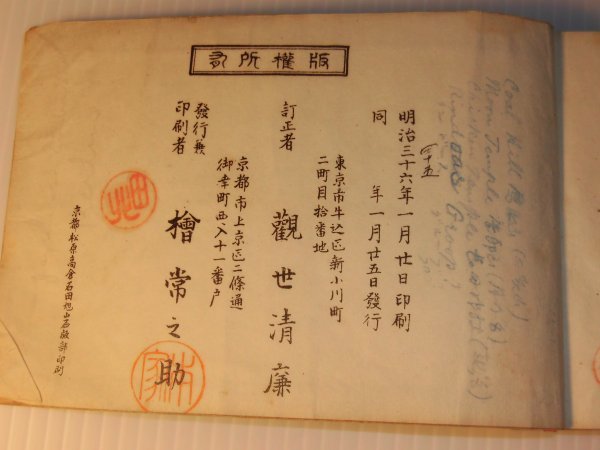 版權所有
明治三十六年一月廿日印刷
四十五
同 年一月廿五日發行
東京市牛込區新小川町
二町目拾番地
訂正者 觀世清廉
京都市上京區二條通
御幸町西入十一番戸
發行兼
印刷者 檜常之助
京都松原高倉石田旭山石版部印刷
Coal Hill
Moon Temple
Temple
Group?